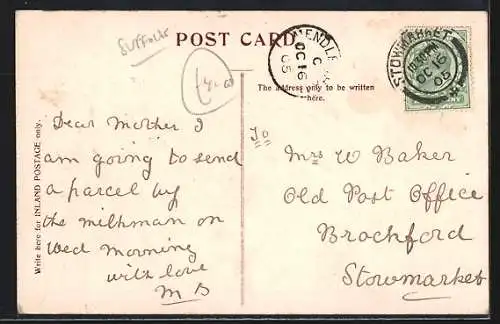 Suffolk
POST CARD
MENDL
C
OC 16
05
STOWMARKET
OC 16
05
The address only to be written
here.
Write here for INLAND POSTAGE only.
Dear Mother I
am going to send
a parcel by
the milkman on
Wed morning
with love
M B
Mrs W Baker
Old Post Office
Brockford
Stowmarket